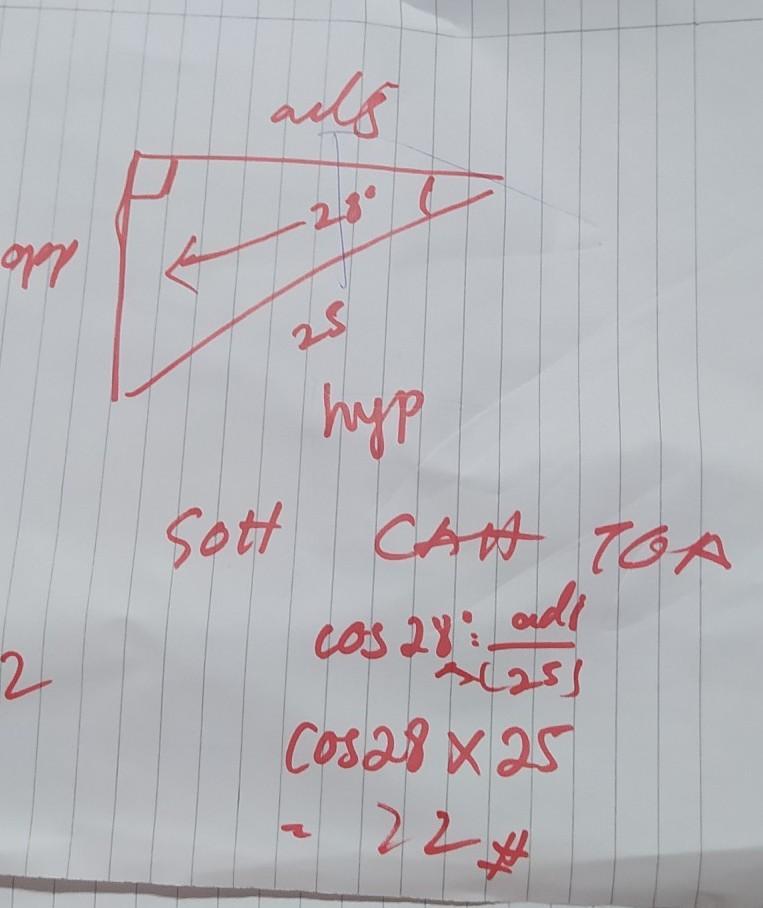 adj
28°
opp
25
hyp
SOH CAH TOA
cos 28° = adj
(25)
2
cos28 × 25
= 22 #